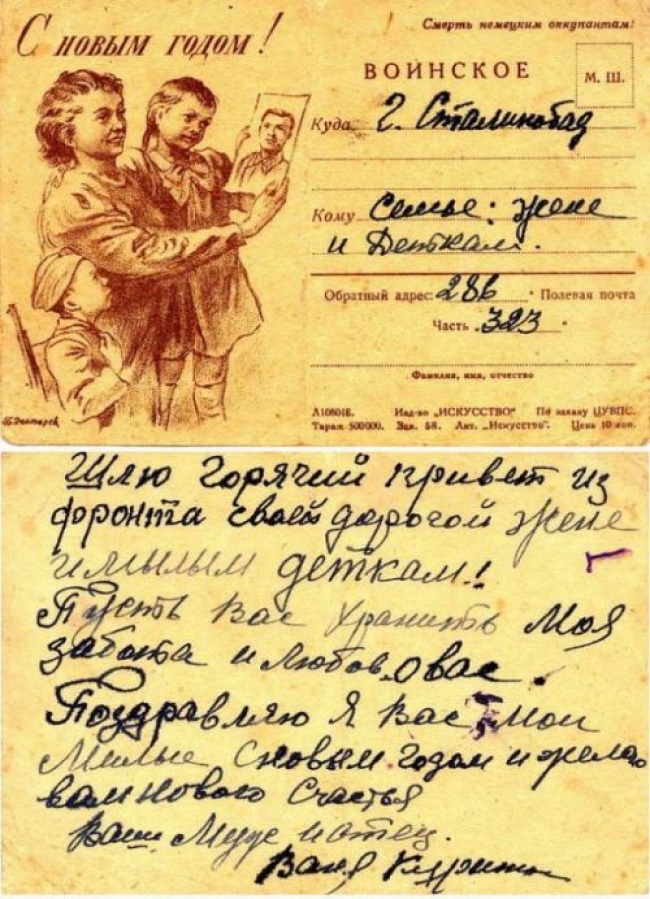 С НОВЫМ ГОДОМ!
Смерть немецким оккупантам!
ВОИНСКОЕ
М. Ш.
Куда г. Сталинобад
Кому Семье: жене
и Деткам.
Обратный адрес: 286 Полевая почта
Часть 323
Фамилия, имя, отчество
Л108018. Изд-во „ИСКУССТВО“ По заказу ЦУВПС.
Тираж 500000. Зак. 58. Лит. „Искусство“. Цена 10 коп.
Шлю горячий привет из
фронта своей дорогой жене
и милым деткам!
Пусть Вас хранить Моя
забота и любов о вас.
Поздравляю я Вас Мои
Милые с новым годом и желаю
вам нового счастья
Ваш Муж и отец.
Ваня